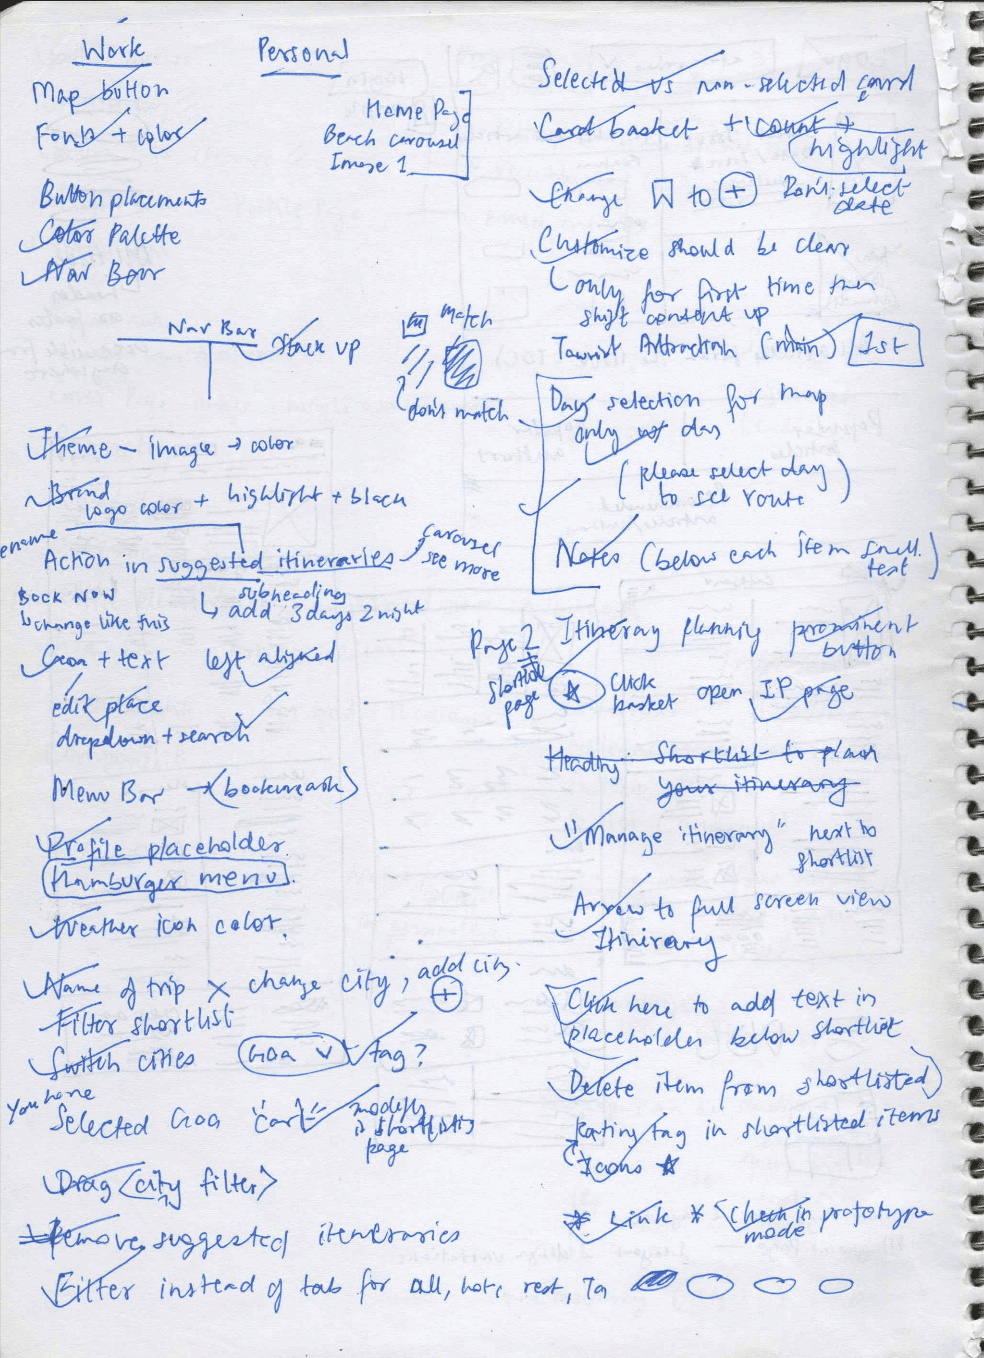 Work
Personal
Map button
Fonts + color
Home Page
Beach carousel
Image 1
Button placements
Color Palette
Nav Bar
Nav Bar
Stack up
match
don't match
Theme - image → color
Brand
logo color + highlight + black
Action in suggested itineraries
carousel
see more
Book Now
↳ change like this
subheading
↳ add 3 days 2 night
Goa + text left aligned
edit place
dropdown + search
Menu Bar → (bookmark)
Profile placeholder
Hamburger menu
Weather icon color.
Name of trip x change city, add city
+
Filter shortlist
Switch cities Goa v tag?
You have
Selected Goa "cart"
modify
shortlisting
page
Drag <city filter>
Remove suggested iteneraries
Filter instead of tab for All, hot, rest, Ta
Selected vs non-selected card
Card basket + count +
highlight
Change to + Don't select
date
Customize should be clear
only for first time then
shift content up
Tourist Attraction (main) 1st
Day selection for map
only day
(please select day
to see route)
Notes (below each item small
text)
Page 2
shortlist
page
Itinerary planning prominent
button
Click
basket open IP page
Heading: Shortlist to plan
your itinerary
"Manage itinerary" next to
shortlist
Arrow to full screen view
Itinerary
Click here to add text in
placeholder below shortlist
Delete item from shortlisted
Rating tag in shortlisted items
Icons ★
* Link * Check in prototype
mode